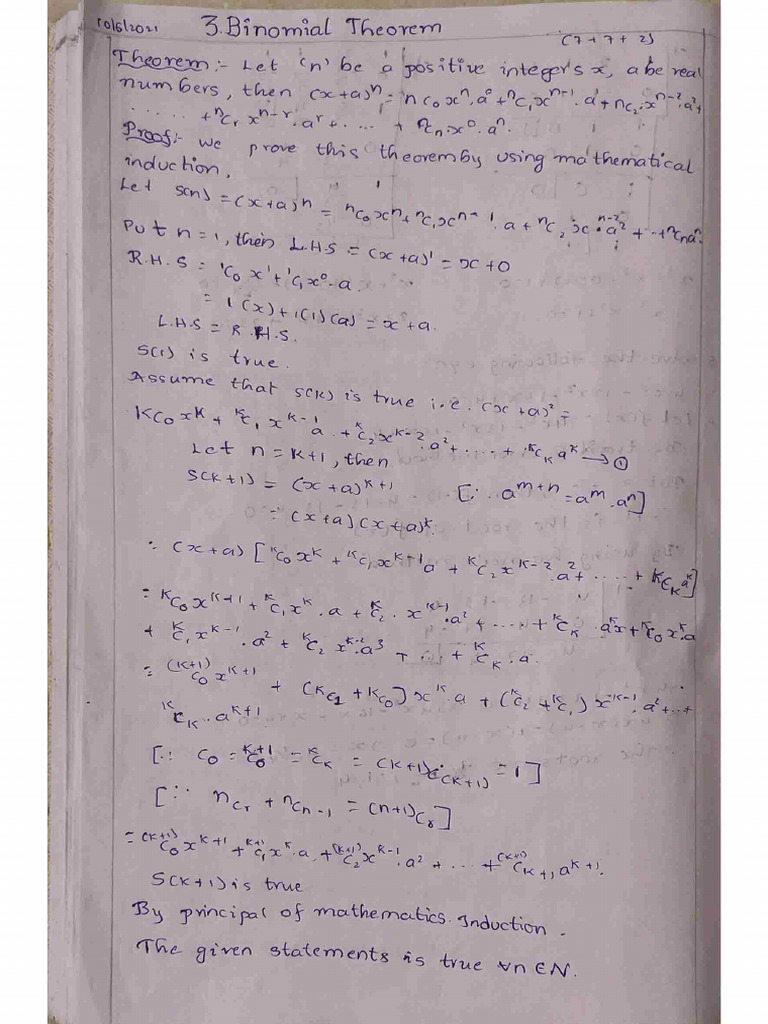 10/6/2021 3. Binomial Theorem
(7+7+2)
Theorem :- Let 'n' be a positive integer's x, a be real
numbers, then (x+a)ⁿ = ⁿC₀xⁿ.a⁰ + ⁿC₁xⁿ⁻¹.a¹ + ⁿC₂.xⁿ⁻².a² +
..... + ⁿCᵣ xⁿ⁻ʳ.aʳ + .... + ⁿCₙ.x⁰.aⁿ.
Proof :- we prove this theorem by using mathematical
induction,
Let S(n) = (x+a)ⁿ = ⁿC₀xⁿ + ⁿC₁xⁿ⁻¹.a + ⁿC₂ x.ⁿ⁻²a² + ..+ ⁿCₙaⁿ.
Put n=1, then L.H.S = (x+a)¹ = x+0
R.H.S = ¹C₀ x¹ + ¹C₁x⁰.a
= 1(x)+1(1)(a) = x+a.
L.H.S = R.H.S.
S(1) is true.
Assume that S(K) is true i.e. (x+a)² =
KC₀ xᴷ + ᴷC₁ xᴷ⁻¹ a + ᴷC₂xᴷ⁻².a² + .... + ᴷCₖ aᴷ → ①
Let n = K+1, then
S(K+1) = (x+a)ᴷ⁺¹ [∵ aᵐ⁺ⁿ = aᵐ.aⁿ]
= (x+a)(x+a)ᴷ
= (x+a) [ᴷC₀xᴷ + ᴷC₁xᴷ⁻¹a + ᴷC₂xᴷ⁻².a² + ..... + ᴷCₖaᴷ]
= ᴷC₀xᴷ⁺¹ + ᴷC₁xᴷ.a + ᴷC₂.xᴷ⁻¹.a² + ..... + ᴷCₖ aᴷx + ᴷC₀xᴷ.a
+ ᴷC₁xᴷ⁻¹.a² + ᴷC₂ xᴷ⁻².a³ + ... + ᴷCₖ.a.
= ⁽ᴷ⁺¹⁾C₀xᴷ⁺¹ + (KC₁ + KC₀)xᴷ.a + (ᴷC₂ + ᴷC₁)xᴷ⁻¹.a² + ..+
ᴷCₖ.aᴷ⁺¹
[∵ C₀ = ᴷ⁺¹C₀ = ᴷCₖ = (K+1)C₍ₖ₊₁₎ = 1]
[∵ nCᵣ + ⁿCₙ₋₁ = (n+1)Cᵣ]
= ⁽ᴷ⁺¹⁾C₀xᴷ⁺¹ + ᴷ⁺¹C₁xᴷ.a + ⁽ᴷ⁺¹⁾C₂xᴷ⁻¹.a² + ... + ⁽ᴷ⁺¹⁾Cₖ₊₁aᴷ⁺¹.
S(K+1) is true
By principal of mathematics Induction.
The given statements is true ∀n∈N.